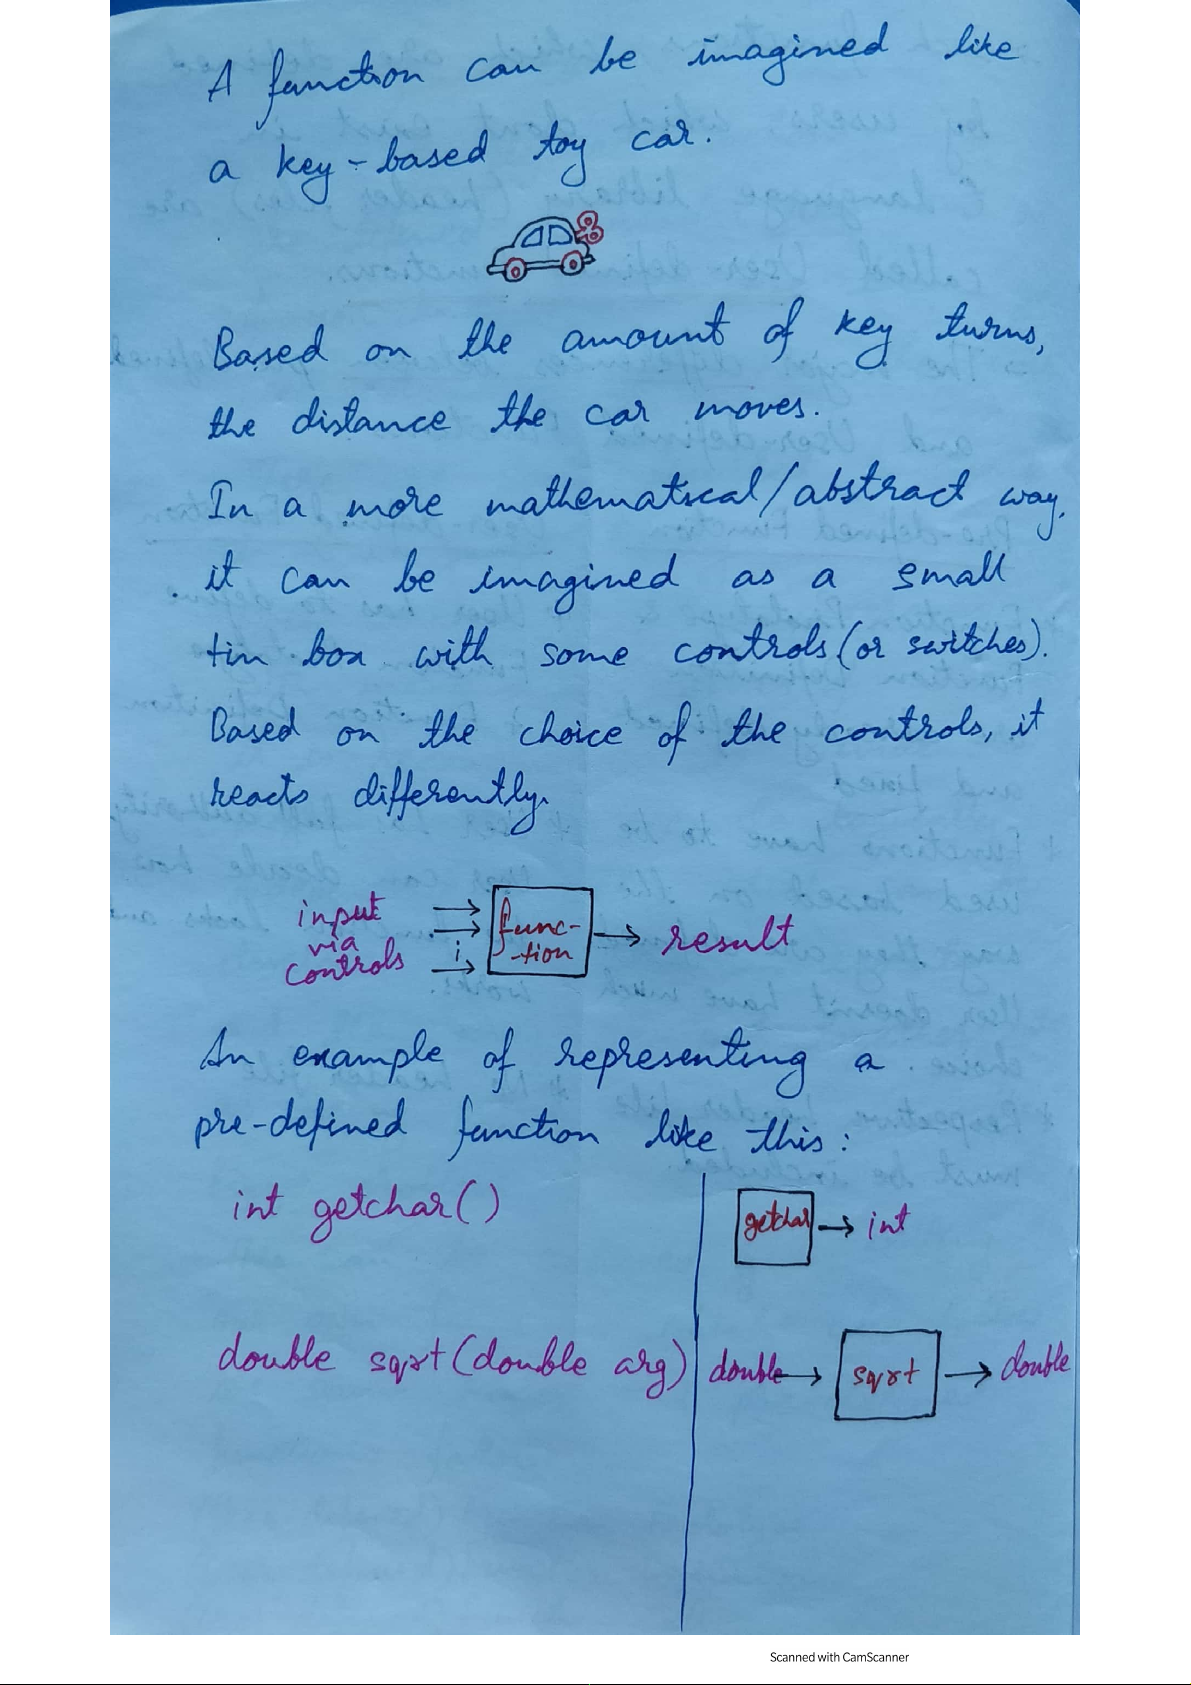 A function can be imagined like
a key-based toy car.
Based on the amount of key turns,
the distance the car moves.
In a more mathematical/abstract way,
it can be imagined as a small
tin box with some controls (or switches).
Based on the choice of the controls, it
reacts differently.
input
via
controls
func-
-tion
result
An example of representing a
pre-defined function like this:
int getchar()
getchar
int
double sqrt(double arg)
double
sqrt
double
Scanned with CamScanner